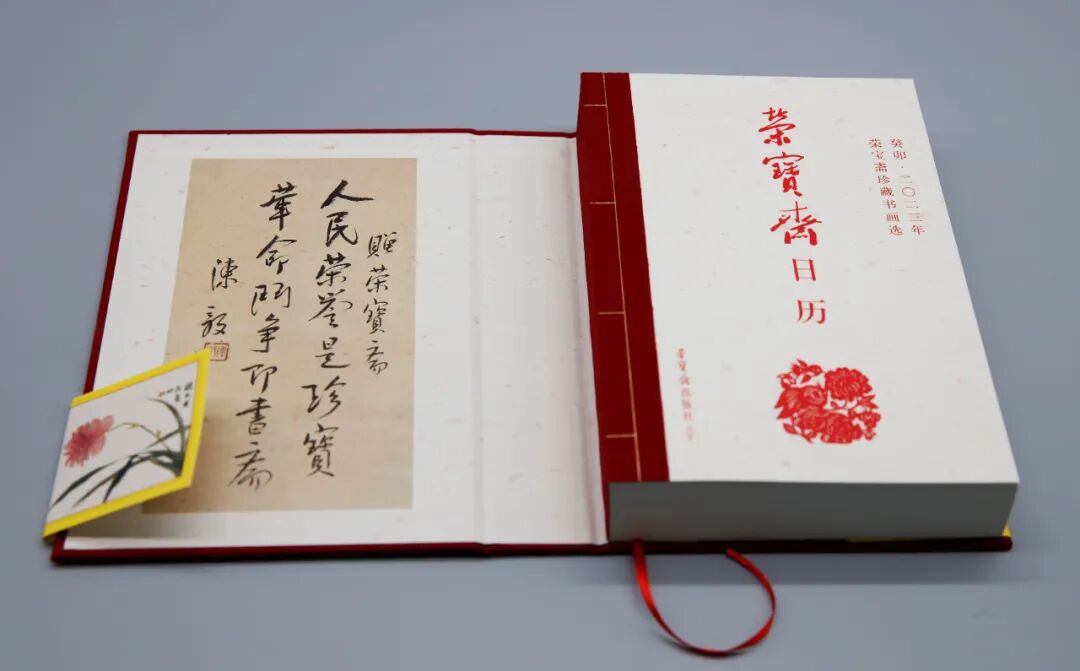 赠荣寶斋
人民荣誉是珍寶
革命鬥争即書斋
陳毅
癸卯·二〇二三年
荣宝斋珍藏书画选
荣寶齋日历
荣寶齋出版社